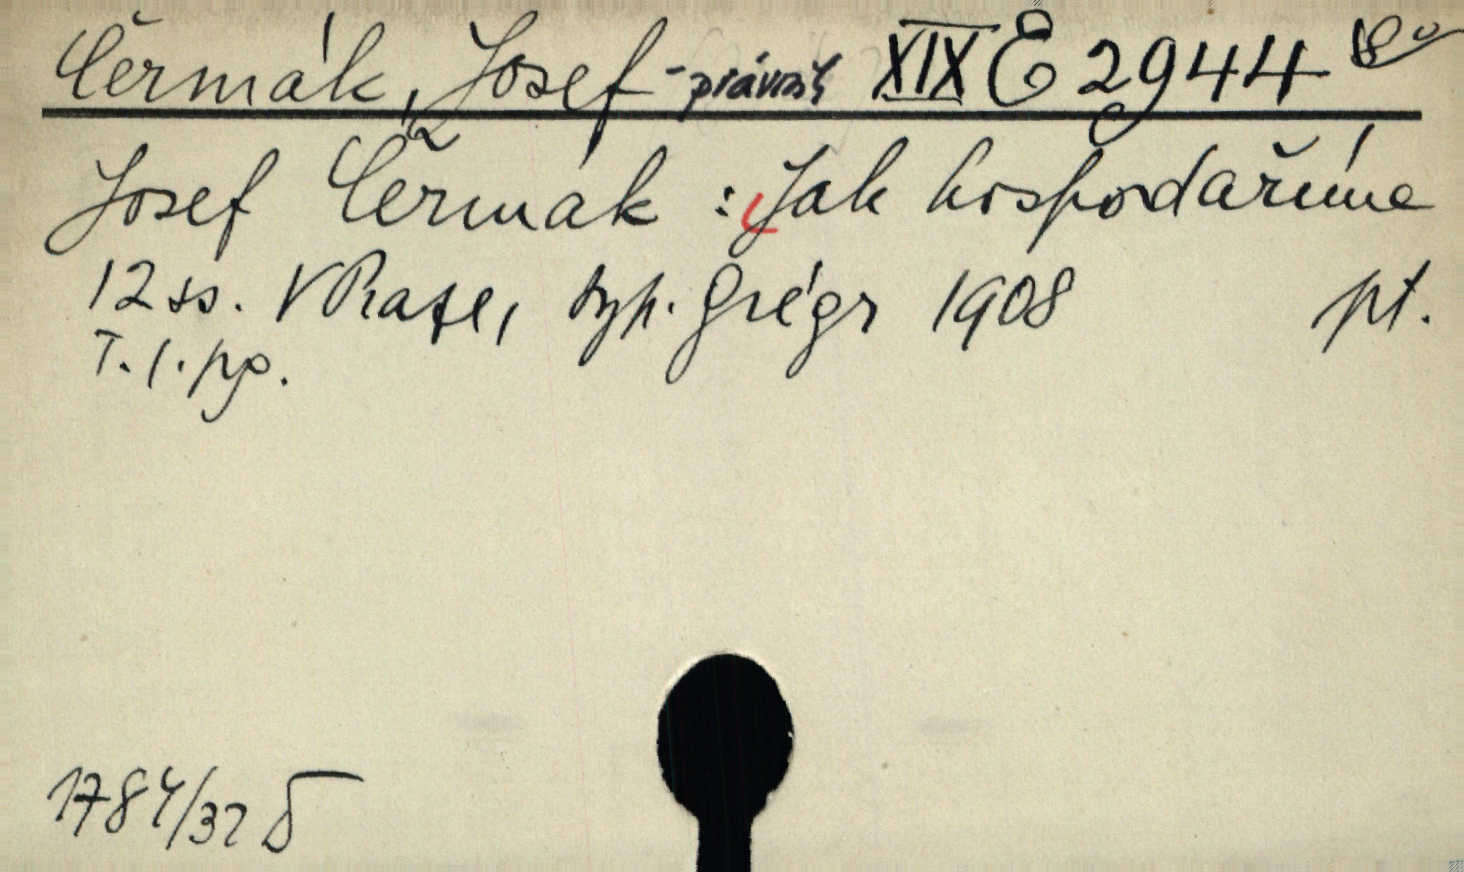 Čermák, Josef - právník XIX E 2944
Josef Čermák : Jak hospodaříme
12 ss. V Praze, typ. Grégr 1908 pt.
T. 1. pg.
1784/37